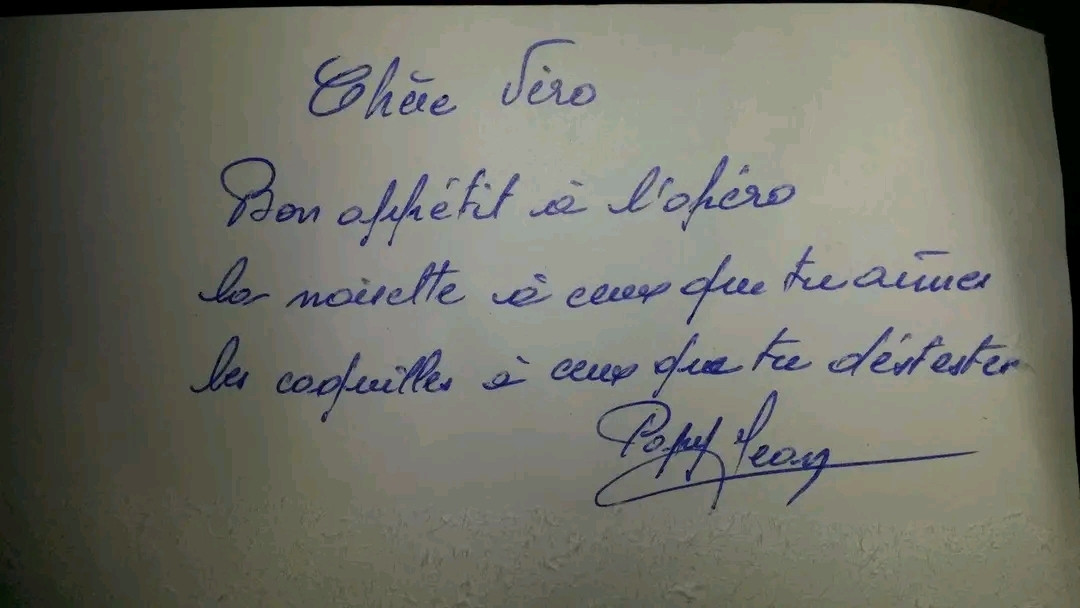 Chère Véro
Bon appétit à l'apéro
la noisette à ceux que tu aimes
les coquilles à ceux que tu déstestes
Papy Jean